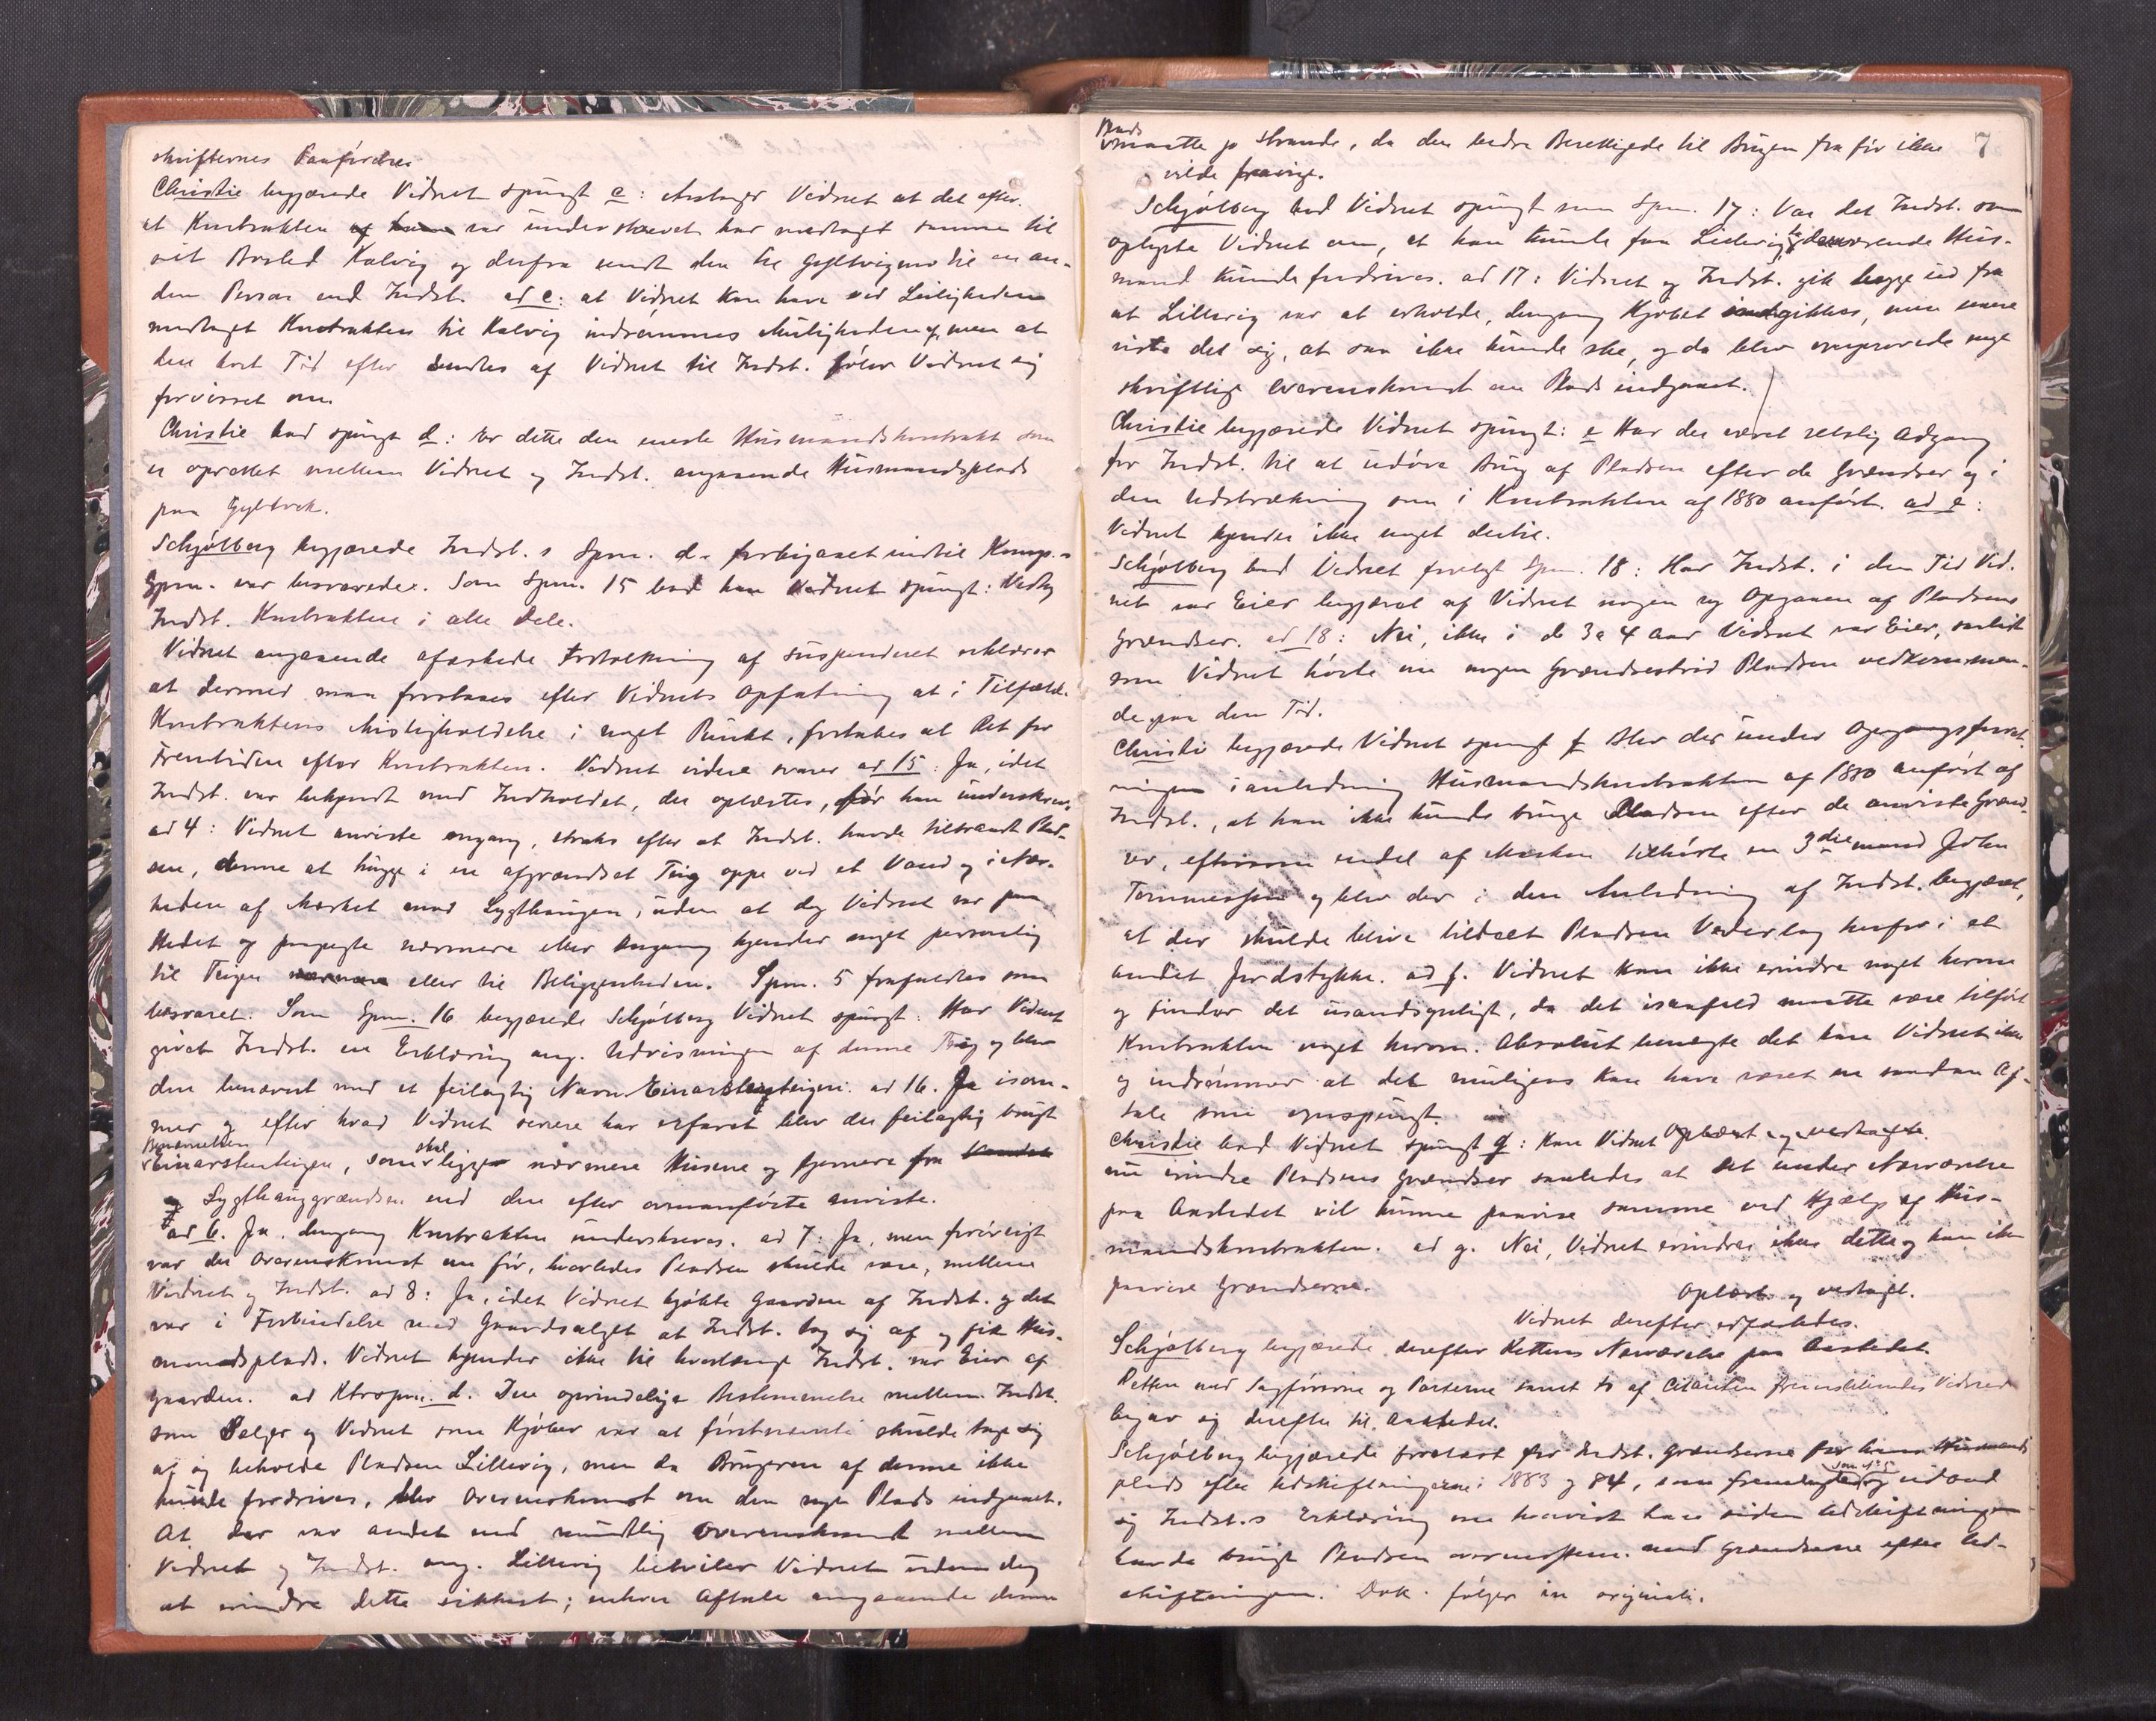 skrifternes Paaførelse.
Christie begjærede Vidnet spurgt c: Antager Vidnet at det efter
at Kontrakten var underskrevet har medtaget samme til
sit Bosted Kalvig og derfra sendt den til Gyltvignes til en an-
den Person end Indst. ad c: at Vidnet kan have ved Leiligheden
medtaget Kontrakten til Kalvig indrømmes Muligheden af, men at
den kort Tid efter sendtes af Vidnet til Indst. føler Vidnet sig
forvisset om.
Christie bad spurgt d: Er dette den eneste Husmandskontrakt som
er oprettet mellem Vidnet og Indst. angaaende Husmandsplads
paa Gyltvik.
Schjøtberg begjærede Indst.s Spm. d. forbigaaet indtil Komp.s
Spm. var besvarede. Som Spm. 15 bad han Vidnet spurgt: Vedtog
Indst. Kontrakten i alle Dele.
Vidnet angaaende afæskede Fortolkning af suspenderet erklærer
at dermed maa forstaaes efter Vidnets Opfatning at i Tilfælde
Kontraktens Misligholdelse i noget Punkt, fortabes al Ret for
Fremtiden efter Kontrakten. Vidnet videre svarer ad 15: Ja, idet
Indst. var bekjendt med Indholdet, der oplæstes, før han underskrev.
ad 4: Vidnet anviste engang, straks efter at Indst. havde tiltraadt Plad-
sen, denne at hugge i en afgrændset Teig oppe ved et Vand og i Nær-
heden af Mærket mod Lygthaugen, uden at dog Vidnet var paa
Stedet og paapegte nærmere eller engang kjender noget personlig
til Teigen eller til Beliggenheden. Spm. 5 frafaldtes som
besvaret. Som Spm. 16 begjærede Schjøtberg Vidnet spurgt: Har Vidnet
givet Indst. en Erklæring ang. Udvisningen af denne Teig og blev
den benævnt med et feilagtig Navn Einarsteigen. ad 16. Ja isom-
mer og efter hvad Vidnet senere har erfaret blev der feilagtig brugt
Benævnelsen
Einarsteigen, som skal ligge nærmere Husene og fjernere fra
Lygthauggrændsen end den efter ovenanførte anviste.
ad 6. Ja, dengang Kontrakten underskreves. ad 7: Ja, men forøvrigt
var der Overenskomst om før, hvorledes Pladsen skulde være, mellem
Vidnet og Indst. ad 8: Ja, idet Vidnet kjøbte Gaarden af Indst. og det
var i Forbindelse med Gaardsalget at Indst. tog sig af og fik Hus-
mandsplads. Vidnet kjender ikke til hvorlænge Indst. var Eier af
Gaarden. ad Ktrspm. d. Den oprindelige Bestemmelse mellem Indst.
som Sælger og Vidnet som Kjøber var at førstnævnte skulde tage sig
af og beholde Pladsen Lillevig, men da Brugeren af denne ikke
kunde fordrives, blev Overenskomst om den nye Plads indgaaet.
At der var andet end mundtlig Overenskomst mellem
Vidnet og Indst. ang. Lillevig betviler Vidnet uden dog
at erindre dette sikkert; enhver Aftale angaaende denne
7
Plads
maatte jo strande, da den bedre Berettigede til Brugen fra før ikke
vilde fravige.
Schjøtberg bad Vidnet spurgt som Spm. 17: Var det Indst. som
oplyste Vidnet om, at han kunde faa Lillevig og daværende Hus-
mand kunde fordrives. ad 17: Vidnet og Indst. gik begge ud fra
at Lillevig var at erholde, dengang Kjøbet indgikkes, men senere
viste det sig, at saa ikke kunde ske, og da blev omprovede nye
skriftlige Overenskomst om Plads indgaaet.
Christie begjærede Vidnet spurgt: e Har der været retslig Adgang
for Indst. til at udøve Brug af Pladsen efter de Grændser og i
den Udstrækning som i Kontrakten af 1880 anført. ad e:
Vidnet kjender ikke noget dertil.
Schjøtberg bad Vidnet forelagt Spm. 18: Har Indst. i den Tid Vid-
net var Eier begjæret af Vidnet nogen ny Opgaaen af Pladsens
Grændser. ad 18: Nei, ikke i de 3 a 4 Aar Vidnet var Eier, saalidt
som Vidnet hørte om nogen Grændsestrid Pladsen vedkommen-
de paa den Tid.
Christie begjærede Vidnet spurgt f Blev der under Opgangsforret-
ningen i anledning Husmandskontrakten af 1880 anført af
Indst., at han ikke kunde bruge Pladsen efter de anviste Grænd-
ser, eftersom endel af Marken tilhørte en 3die mand John
Tommessen og blev der i den Anledning af Indst. begjæret,
at der skulde blive tildelt Pladsen Vederlag herfor i et
andet Jordstykke. ad f. Vidnet kan ikke erindre noget herom
og finder det usandsynligt, da det isaafald maatte være tilført
Kontrakten noget herom. Absolut benægte det kan Vidnet ikke
og indrømmer at det muligens kan have været en saadan Af-
tale som omspurgt.
Oplæst og vedtaget.
Christie bad Vidnet spurgt g: Kan Vidnet
nu erindre Pladsens Grændser saaledes at det under Nærværelse
paa Aastedet vil kunne paavise samme ved Hjælp af Hus-
mandskontrakten. ad g. Nei, Vidnet erindrer ikke dette og kan ikke
paavise Grændserne.
Oplæst og vedtaget.
Vidnet derefter afskedes.
Schjøtberg begjærede derefter Rettens Nærværelse paa Aastedet.
Retten med Sagførerne og Parterne samt to af Citanten fremstillendes Vidner
begav sig derefter til Aastedet.
Schjøtberg begjærede forelæst for Indst. Grændserne for hans Husmands-
plads efter Udskiftningerne i 1883 og 84, som fremlagdes som No 5 og udbad
sig Indst.s Erklæring om hvorvidt han siden Udskiftningen
havde brugt Pladsen overensstem. med Grændserne efter Ud-
skiftningen. Dok. følger in originali.